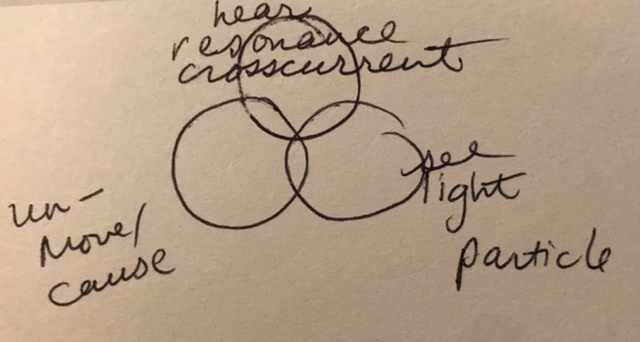 hear
resonance
crosscurrent
see
light
particle
un-
move/
cause